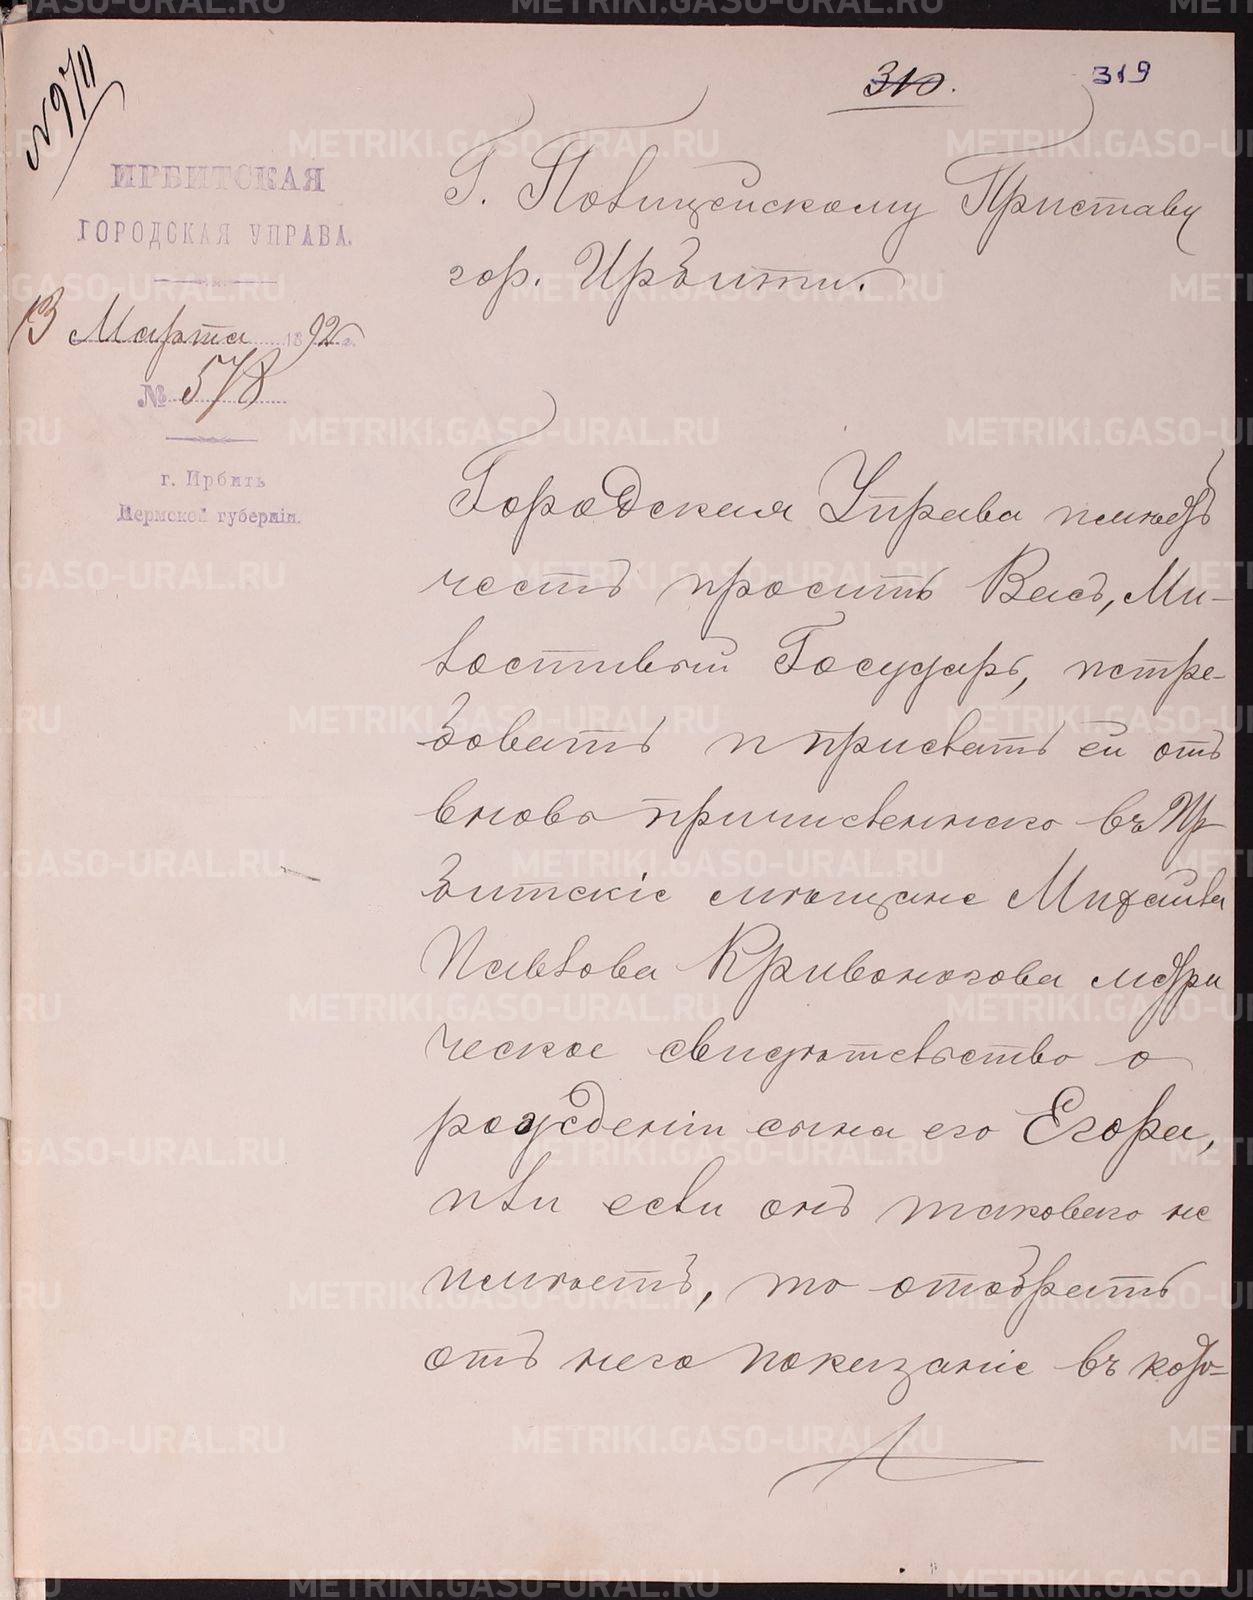 № 97/11
310.
319
ИРБИТСКАЯ
ГОРОДСКАЯ УПРАВА.
13 Марта 1892 г.
№ 578
г. Ирбить
Пермской губерніи.
Г. Полицейскому Приставу
гор. Ирбити.
Городская Управа имѣетъ
честь просить Васъ, Ми-
лостивый Государь, истре-
бовать и прислать ей отъ
вновь причисленнаго въ Ир
битскіе мѣщане Михаила
Павлова Кривоногова метри
ческое свидѣтельство о
рожденіи сына его Егора,
или если онъ таковаго не
имѣетъ, то отобрать
отъ него показаніе въ кото-
METRIKI.GASO-URAL.RU